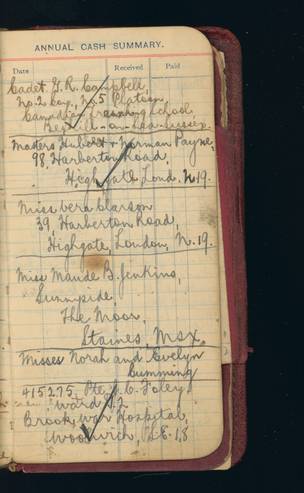 ANNUAL CASH SUMMARY.
Date Received Paid
Cadet G. R. Campbell,
No. 2 Coy, No. 5 Platoon,
Canadian Training School,
Bexhill-on-Sea Sussex.
Masters Hubert + Norman Payne,
98, Harberton Road,
Highgate Lond. N.19.
Miss Vera Clarson
39, Harberton Road,
Highgate, London, N.19.
Miss Maude B. Jenkins,
Sunnyside,
The Moor,
Staines, Msx.
Misses Norah and Evelyn
Cumming
415275, Pte J. C. Foley
Ward 2
Brook War Hospital,
Woolwich, S.E. 18